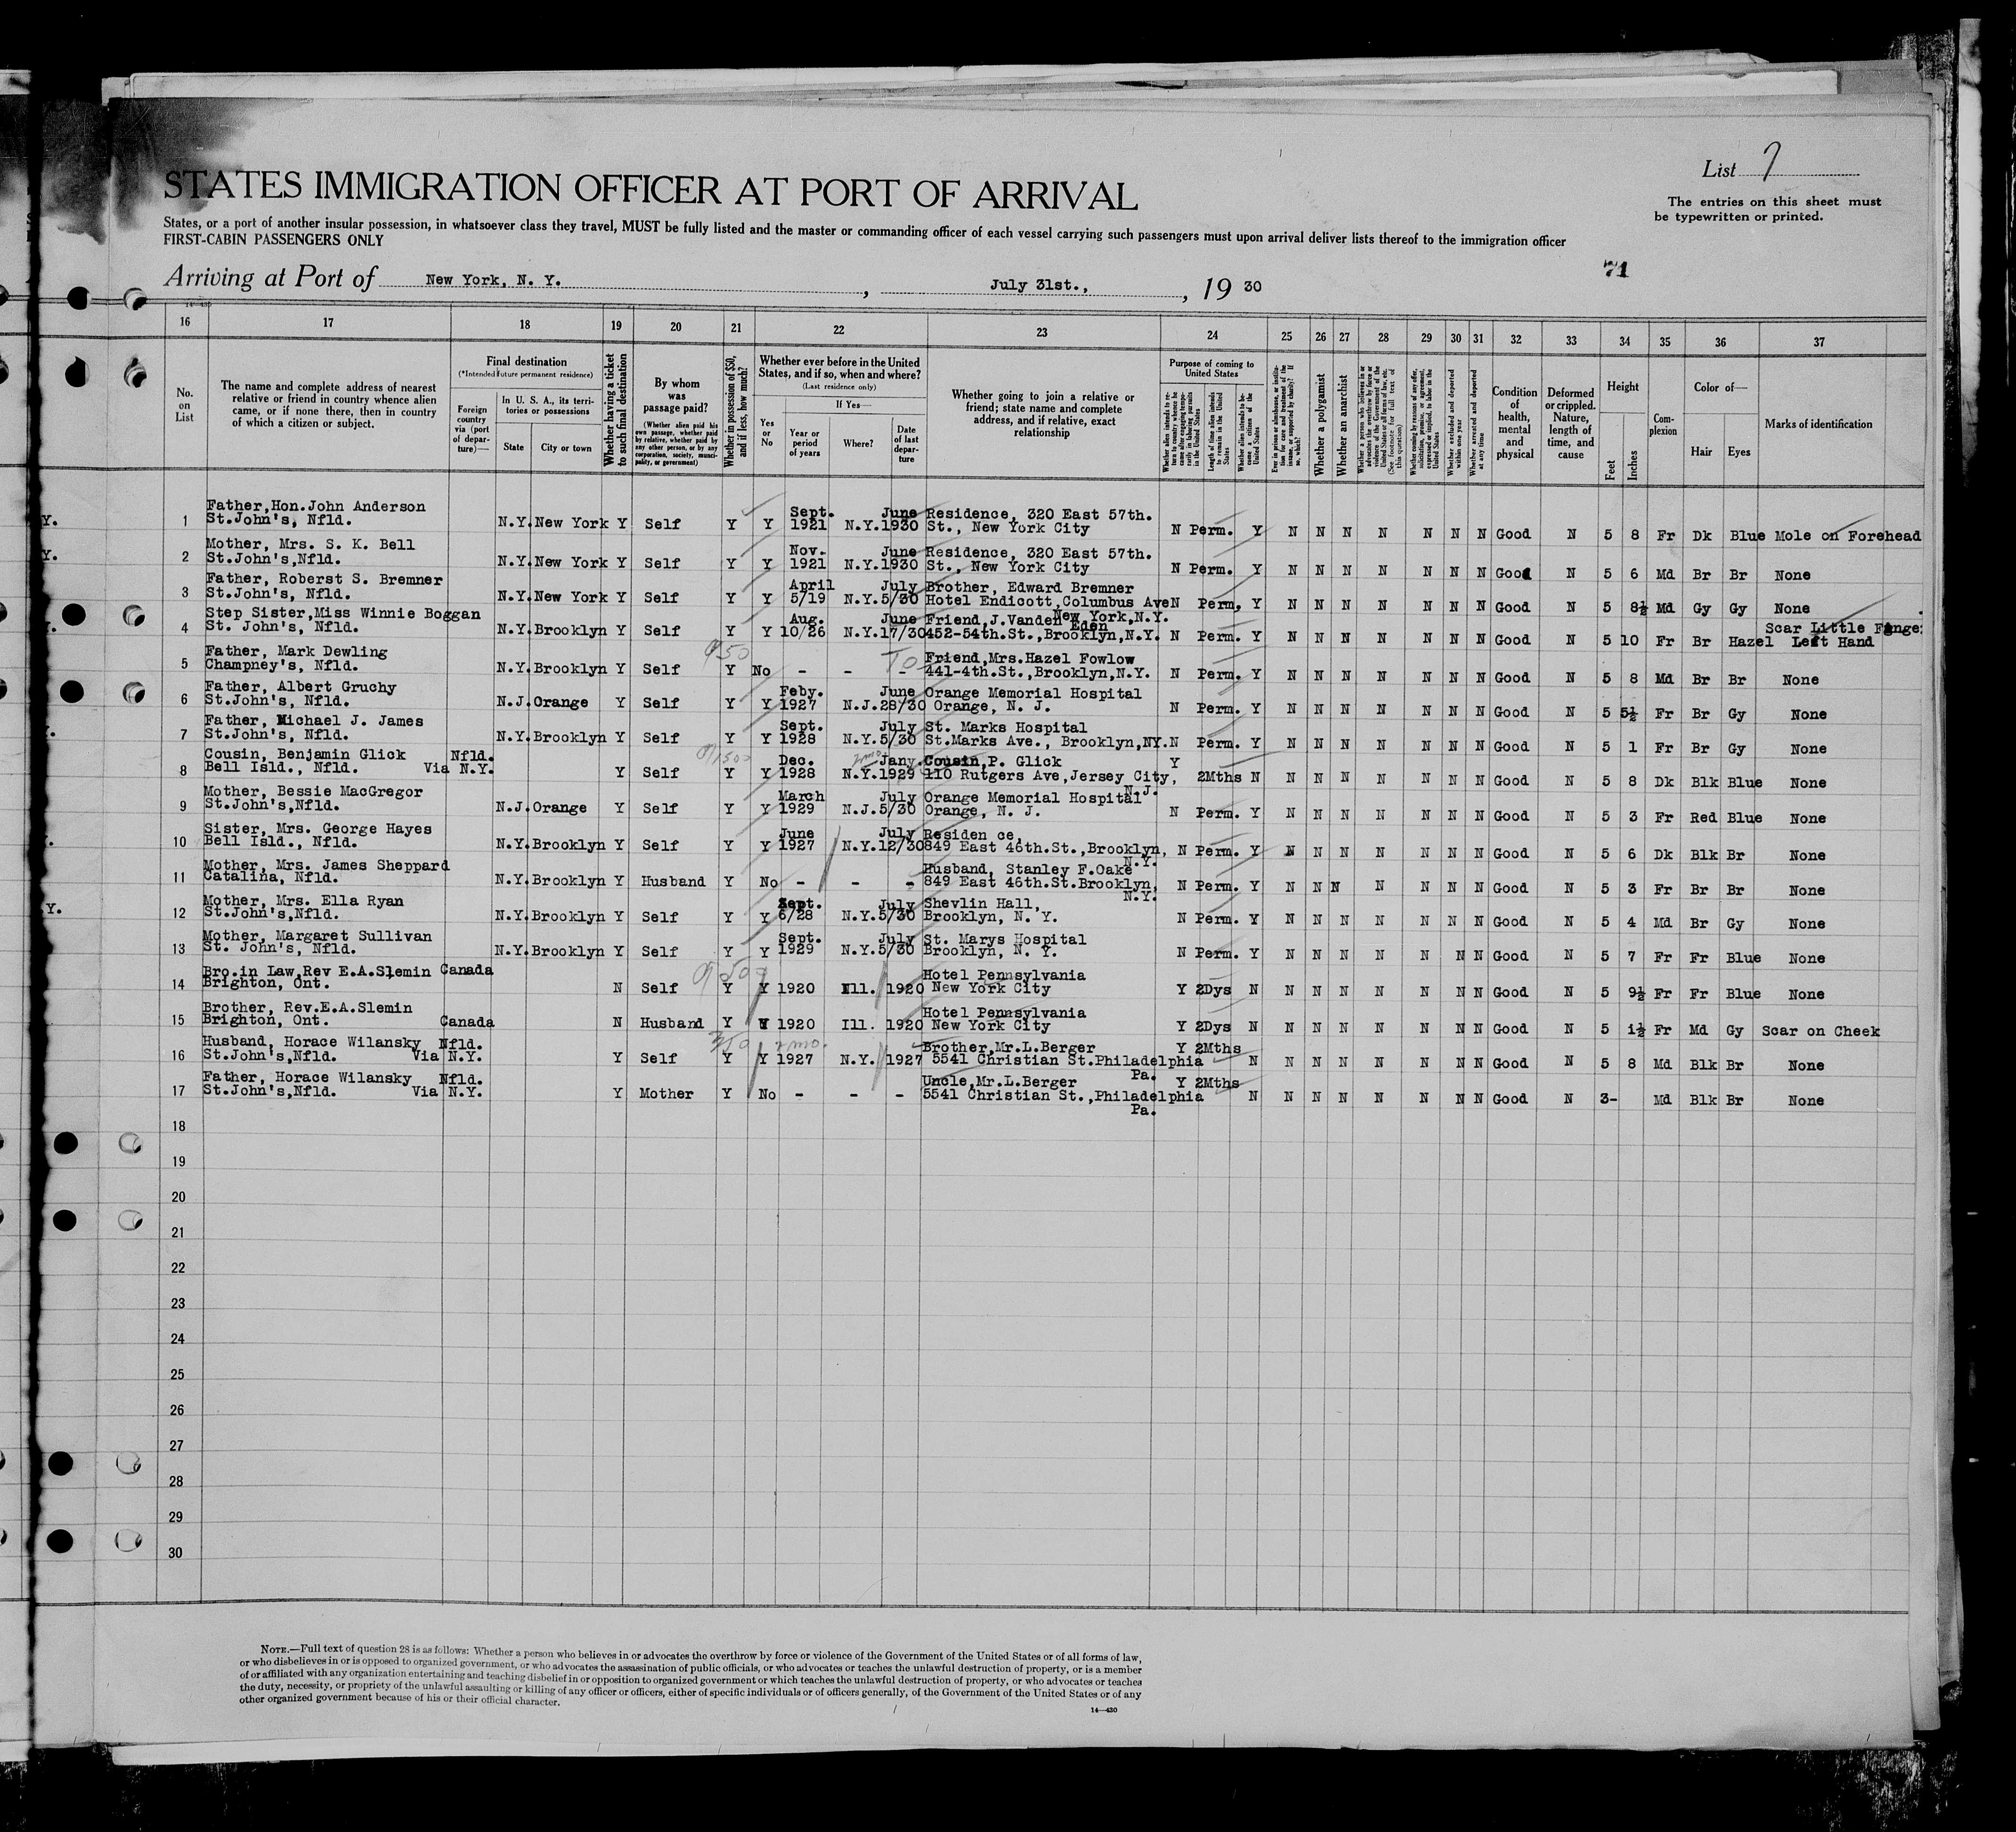 List 7
STATES IMMIGRATION OFFICER AT PORT OF ARRIVAL
The entries on this sheet must
be typewritten or printed.
States, or a port of another insular possession, in whatsoever class they travel, MUST be fully listed and the master or commanding officer of each vessel carrying such passengers must upon arrival deliver lists thereof to the immigration officer
FIRST-CABIN PASSENGERS ONLY
71
Arriving at Port of New York, N. Y. , July 31st., , 19 30
14-430
16 17 18 19 20 21 22 23 24 25 26 27 28 29 30 31 32 33 34 35 36 37
No. on List
The name and complete address of nearest relative or friend in country whence alien came, or if none there, then in country of which a citizen or subject.
Final destination
(*Intended future permanent residence)
Foreign country via (port of departure)—
In U. S. A., its territories or possessions
State
City or town
Whether having a ticket to such final destination
By whom was passage paid?
(Whether alien paid his own passage, whether paid by relative, whether paid by any other person, or by any corporation, society, municipality, or government)
Whether in possession of $50, and if less, how much?
Whether ever before in the United States, and if so, when and where?
(Last residence only)
Yes or No
If Yes—
Year or period of years
Where?
Date of last departure
Whether going to join a relative or friend; state name and complete address, and if relative, exact relationship
Purpose of coming to United States
Whether alien intends to return to country whence he came after engaging temporarily in laboring pursuits in the United States
Length of time alien intends to remain in the United States
Whether alien intends to become a citizen of the United States
Ever in prison or almshouse, or institution for care and treatment of the insane, or supported by charity? If so, which?
Whether a polygamist
Whether an anarchist
Whether a person who believes in or advocates the overthrow by force or violence of the Government of the United States or all forms of law, etc. (See footnote for full text of this question)
Whether coming by reasons of any offer, solicitation, promise, or agreement, expressed or implied, to labor in the United States
Whether excluded and deported within one year
Whether arrested and deported at any time
Condition of health, mental and physical
Deformed or crippled. Nature, length of time, and cause
Height
Feet
Inches
Complexion
Color of—
Hair
Eyes
Marks of identification
Father,Hon.John Anderson Sept. June Residence, 320 East 57th.
1 St.John's, Nfld. N.Y. New York Y Self Y Y 1921 N.Y. 1930 St., New York City N Perm. Y N N N N N N N Good N 5 8 Fr Dk Blue Mole on Forehead
Mother, Mrs. S. K. Bell Nov. June Residence, 320 East 57th.
2 St.John's,Nfld. N.Y. New York Y Self Y Y 1921 N.Y. 1930 St., New York City N Perm. Y N N N N N N N Good N 5 6 Md Br Br None
Father, Roberst S. Bremner April July Brother, Edward Bremner
3 St.John's, Nfld. N.Y. New York Y Self Y Y 5/19 N.Y. 5/30 Hotel Endicott,Columbus Ave N Perm, Y N N N N N N N Good N 5 8½ Md Gy Gy None
New York,N.Y.
Step Sister,Miss Winnie Boggan Aug. June Friend,J.Vanden Eden Scar Little Finger
4 St. John's, Nfld. N.Y. Brooklyn Y Self Y Y 10/26 N.Y. 17/30 452-54th.St.,Brooklyn,N.Y. N Perm. Y N N N N N N N Good N 5 10 Fr Br Hazel Left Hand
Father, Mark Dewling 50 To Friend,Mrs.Hazel Fowlow
5 Champney's, Nfld. N.Y. Brooklyn Y Self Y No - - - 441-4th.St.,Brooklyn,N.Y. N Perm. Y N N N N N N N Good N 5 8 Md Br Br None
Father, Albert Gruchy Feby. June Orange Memorial Hospital
6 St.John's, Nfld. N.J. Orange Y Self Y Y 1927 N.J. 28/30 Orange, N. J. N Perm. Y N N N N N N N Good N 5 5½ Fr Br Gy None
Father, Michael J. James Sept. July St. Marks Hospital
7 St.John's, Nfld. N.Y. Brooklyn Y Self Y Y 1928 N.Y. 5/30 St.Marks Ave., Brooklyn,NY. N Perm. Y N N N N N N N Good N 5 1 Fr Br Gy None
Cousin, Benjamin Glick Nfld. Dec. Jany. Cousin,P. Glick Y
8 Bell Isld., Nfld. Via N.Y. Y Self Y Y 1928 N.Y. 1929 110 Rutgers Ave,Jersey City, 2Mths N N N N N N N N Good N 5 8 Dk Blk Blue None
N.J.
Mother, Bessie MacGregor March July Orange Memorial Hospital
9 St.John's,Nfld. N.J. Orange Y Self Y Y 1929 N.J. 5/30 Orange, N. J. N Perm. Y N N N N N N N Good N 5 3 Fr Red Blue None
Sister, Mrs. George Hayes June July Residen ce,
10 Bell Isld., Nfld. N.Y. Brooklyn Y Self Y Y 1927 N.Y. 12/30 849 East 46th.St.,Brooklyn, N Perm. Y N N N N N N N Good N 5 6 Dk Blk Br None
N.Y.
Mother, Mrs. James Sheppard Husband, Stanley F.Oake
11 Catalina, Nfld. N.Y. Brooklyn Y Husband Y No - - - 849 East 46th.St.Brooklyn, N Perm. Y N N N N N N N Good N 5 3 Fr Br Br None
N.Y.
Mother, Mrs. Ella Ryan Sept. July Shevlin Hall,
12 St.John's,Nfld. N.Y. Brooklyn Y Self Y Y 6/28 N.Y. 5/30 Brooklyn, N. Y. N Perm. Y N N N N N N N Good N 5 4 Md Br Gy None
Mother, Margaret Sullivan Sept. July St. Marys Hospital
13 St. John's, Nfld. N.Y. Brooklyn Y Self Y Y 1929 N.Y. 5/30 Brooklyn, N. Y. N Perm. Y N N N N N N N Good N 5 7 Fr Fr Blue None
Bro.in Law,Rev E.A.Slemin Canada 50 Hotel Pennsylvania
14 Brighton, Ont. N Self Y Y 1920 Ill. 1920 New York City Y 2Dys N N N N N N N N Good N 5 9½ Fr Fr Blue None
Brother, Rev.E.A.Slemin Hotel Pennsylvania
15 Brighton, Ont. Canada N Husband Y Y 1920 Ill. 1920 New York City Y 2Dys N N N N N N N N Good N 5 1½ Fr Md Gy Scar on Cheek
Husband, Horace Wilansky Nfld. Brother,Mr.L.Berger Y 2Mths
16 St.John's,Nfld. Via N.Y. Y Self Y Y 1927 N.Y. 1927 5541 Christian St.Philadelphia N N N N N N N N Good N 5 8 Md Blk Br None
Pa.
Father, Horace Wilansky Nfld. Uncle,Mr.L.Berger Y 2Mths
17 St.John's,Nfld. Via N.Y. Y Mother Y No - - - 5541 Christian St.,Philadelphia N N N N N N N N Good N 3- Md Blk Br None
Pa.
18
19
20
21
22
23
24
25
26
27
28
29
30
NOTE.—Full text of question 28 is as follows: Whether a person who believes in or advocates the overthrow by force or violence of the Government of the United States or of all forms of law,
or who disbelieves in or is opposed to organized government, or who advocates the assassination of public officials, or who advocates or teaches the unlawful destruction of property, or is a member
of or affiliated with any organization entertaining and teaching disbelief in or opposition to organized government or which teaches the unlawful destruction of property, or who advocates or teaches
the duty, necessity, or propriety of the unlawful assaulting or killing of any officer or officers, either of specific individuals or of officers generally, of the Government of the United States or of any
other organized government because of his or their official character.
14—430